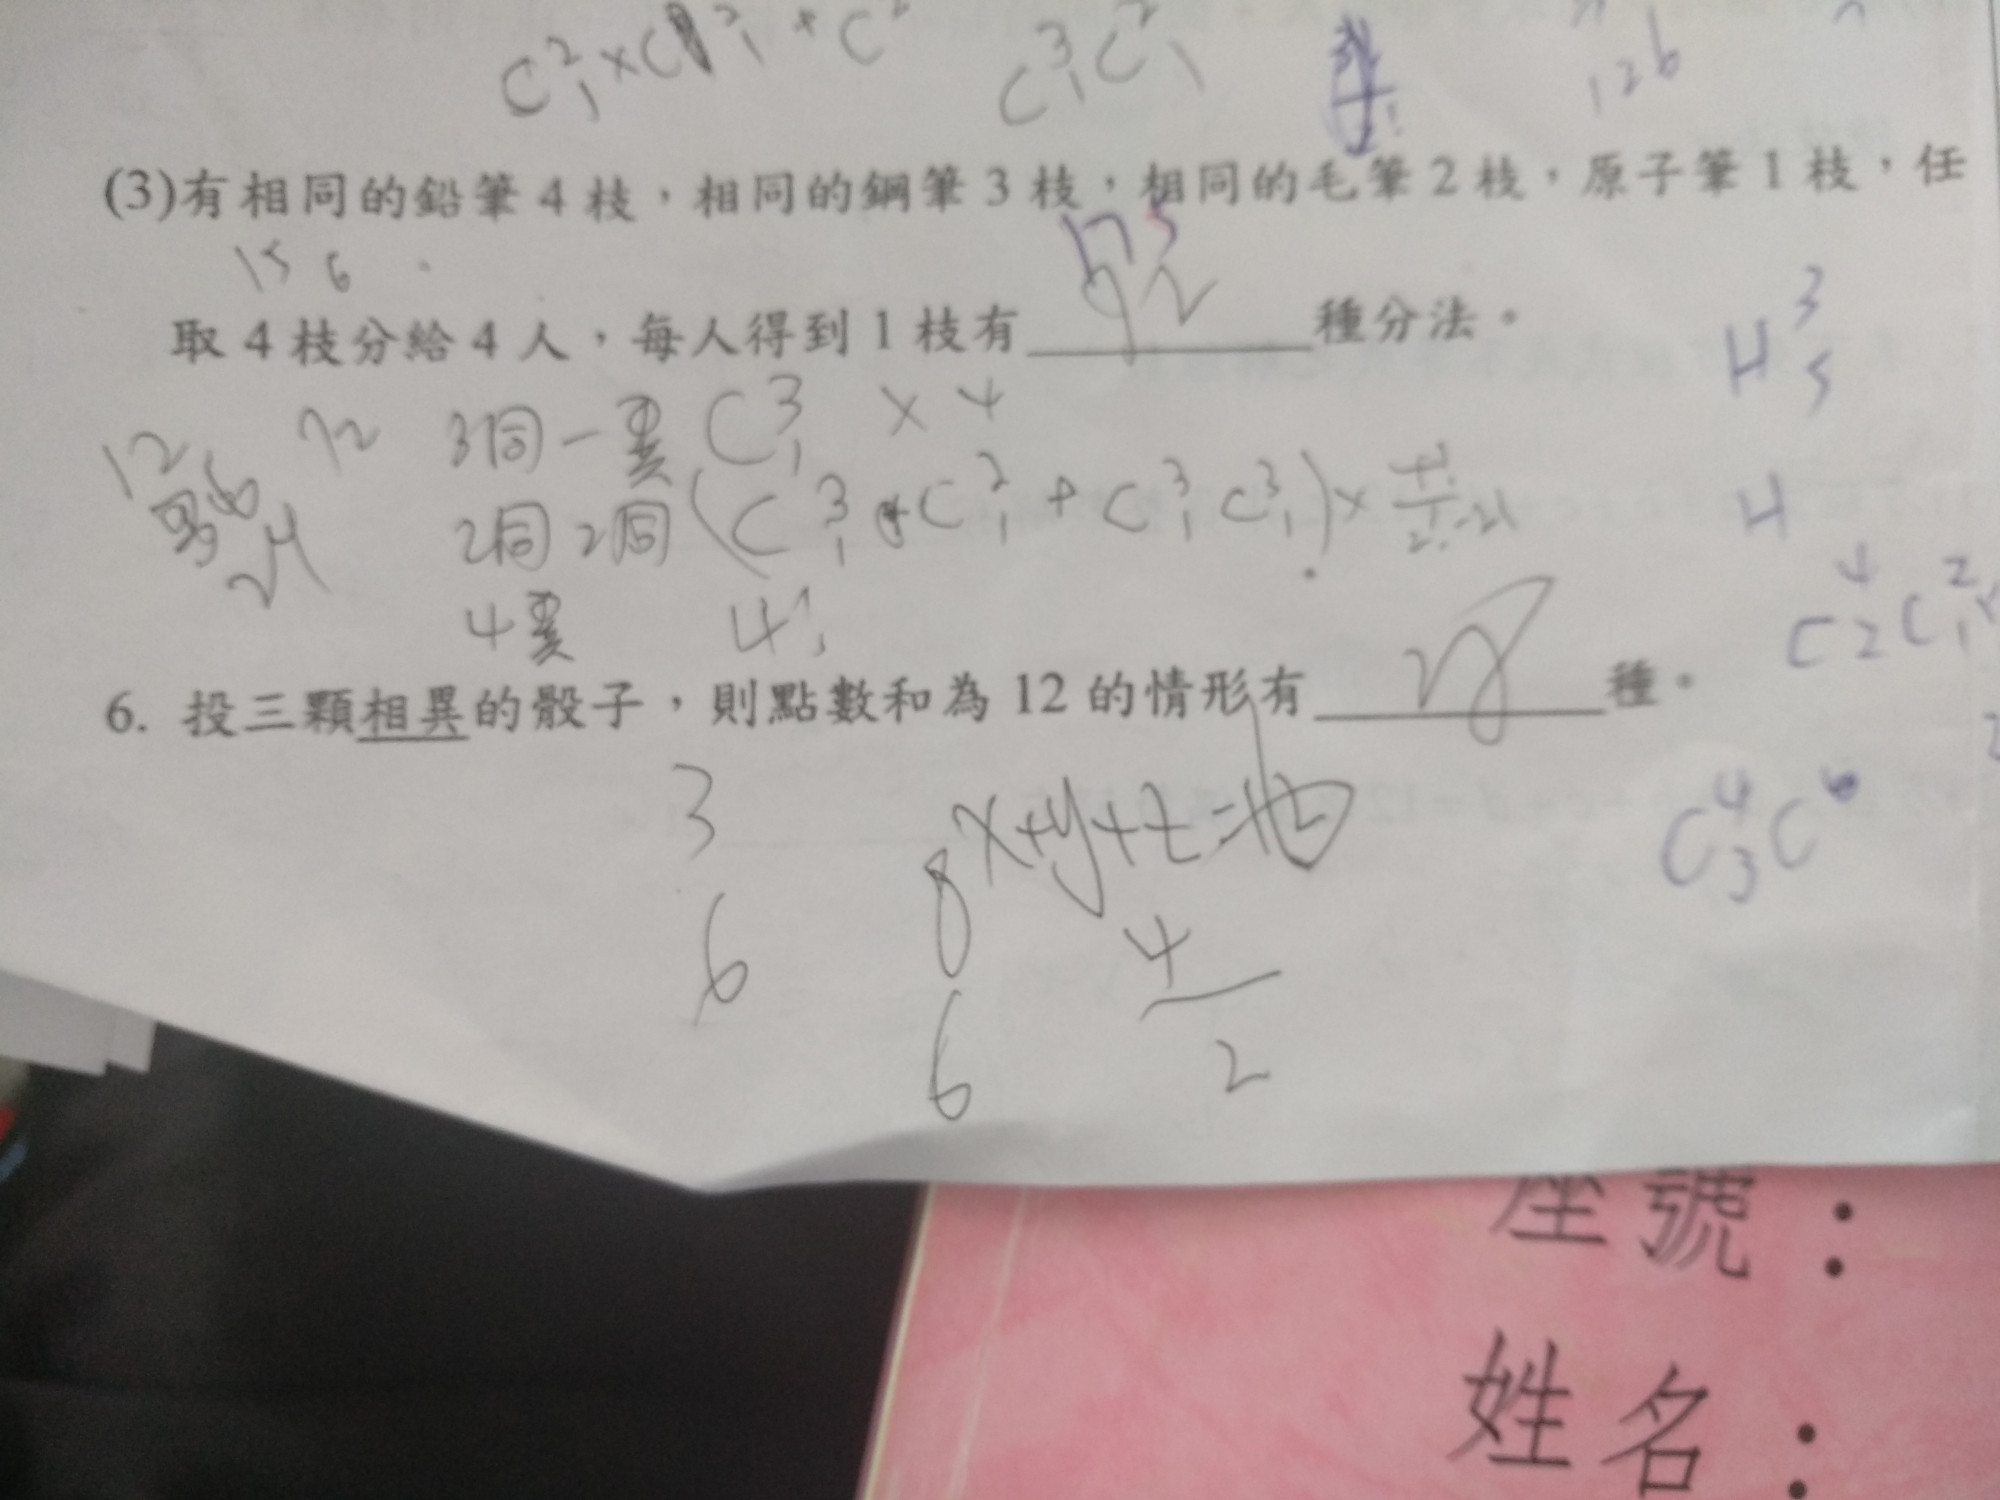 C²₁×C²₁+C² C³₁C²₁ 126
(3)有相同的鉛筆4枝，相同的鋼筆3枝，相同的毛筆2枝，原子筆1枝，任
15 6 175
取4枝分給4人，每人得到1枝有 種分法。
H³₅
12 72 3同一異 C³₁ ×4
36 2同2同 (C³₁ C²₁ + C³₁ C³₁)× H
24 4異 4! C⁴₂C²₁
6. 投三顆相異的骰子，則點數和為12的情形有 種。
3 x+y+z=12 C⁴₃C⁶
8
6 4
6 2
座號：
姓名：